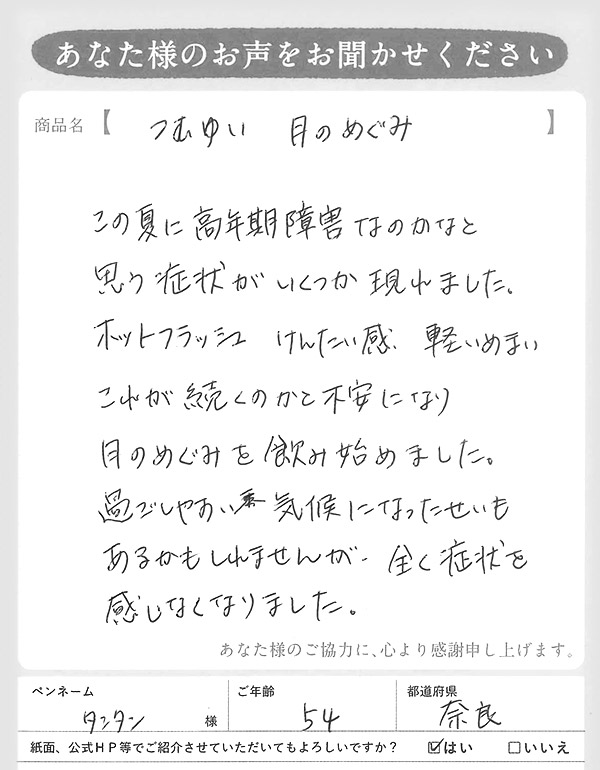 あなた様のお声をお聞かせください
商品名【 つむゆい 月のめぐみ 】
この夏に高年期障害なのかなと
思う症状がいくつか現れました。
ホットフラッシュ けんたい感 軽いめまい
これが続くのかと不安になり
月のめぐみを飲み始めました。
過ごしやすい気候になったせいも
あるかもしれませんが 全く症状を
感じなくなりました。
あなた様のご協力に、心より感謝申し上げます。
ペンネーム ご年齢 都道府県
タンタン 様 54 奈良
紙面、公式HP等でご紹介させていただいてもよろしいですか? ☑はい □いいえ